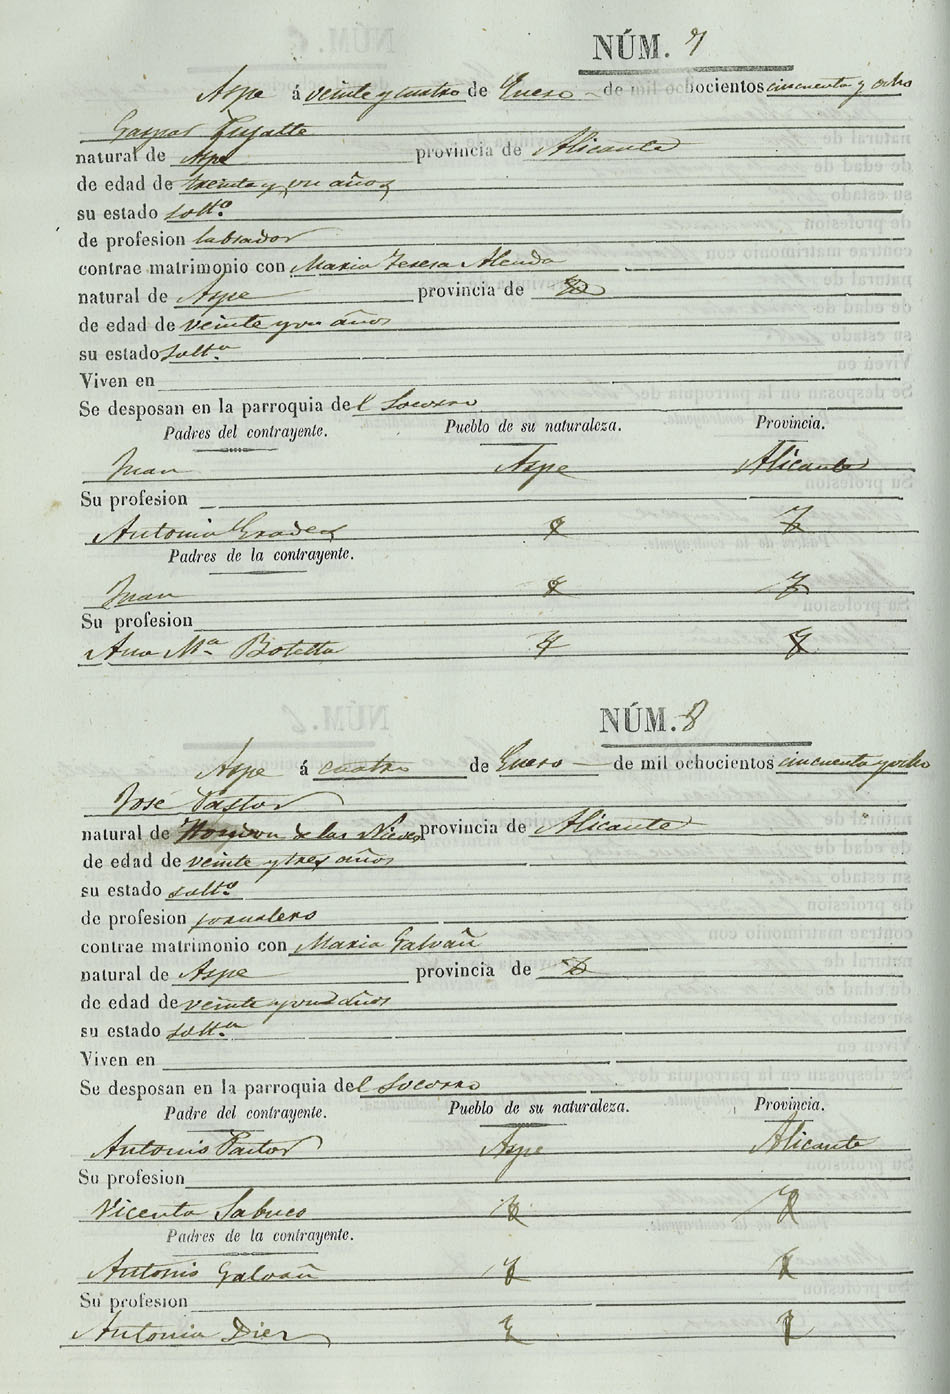 NÚM. 7
Aspe á veinte y cuatro de Enero de mil ochocientos cincuenta y ocho
Gaspar Pujalte
natural de Aspe provincia de Alicante
de edad de treinta y un años
su estado soltº
de profesion labrador
contrae matrimonio con Maria Teresa Alenda
natural de Aspe provincia de
de edad de veinte y un años
su estado soltª
Viven en
Se desposan en la parroquia del Socorro
Padres del contrayente. Pueblo de su naturaleza. Provincia.
Juan Aspe Alicante
Su profesion
Antonia
Padres de la contrayente.
Juan
Su profesion
Ana Mª Botella
NÚM. 8
Aspe á cuatro de Enero de mil ochocientos cincuenta y ocho
José Pastor
natural de de las Nieves provincia de Alicante
de edad de veinte y tres años
su estado soltº
de profesion jornalero
contrae matrimonio con Maria Galvañ
natural de Aspe provincia de
de edad de veinte y un años
su estado soltª
Viven en
Se desposan en la parroquia del Socorro
Padre del contrayente. Pueblo de su naturaleza. Provincia.
Antonio Pastor Aspe Alicante
Su profesion
Vicenta Sabuco
Padres de la contrayente.
Antonio Galvañ
Su profesion
Antonia Dier